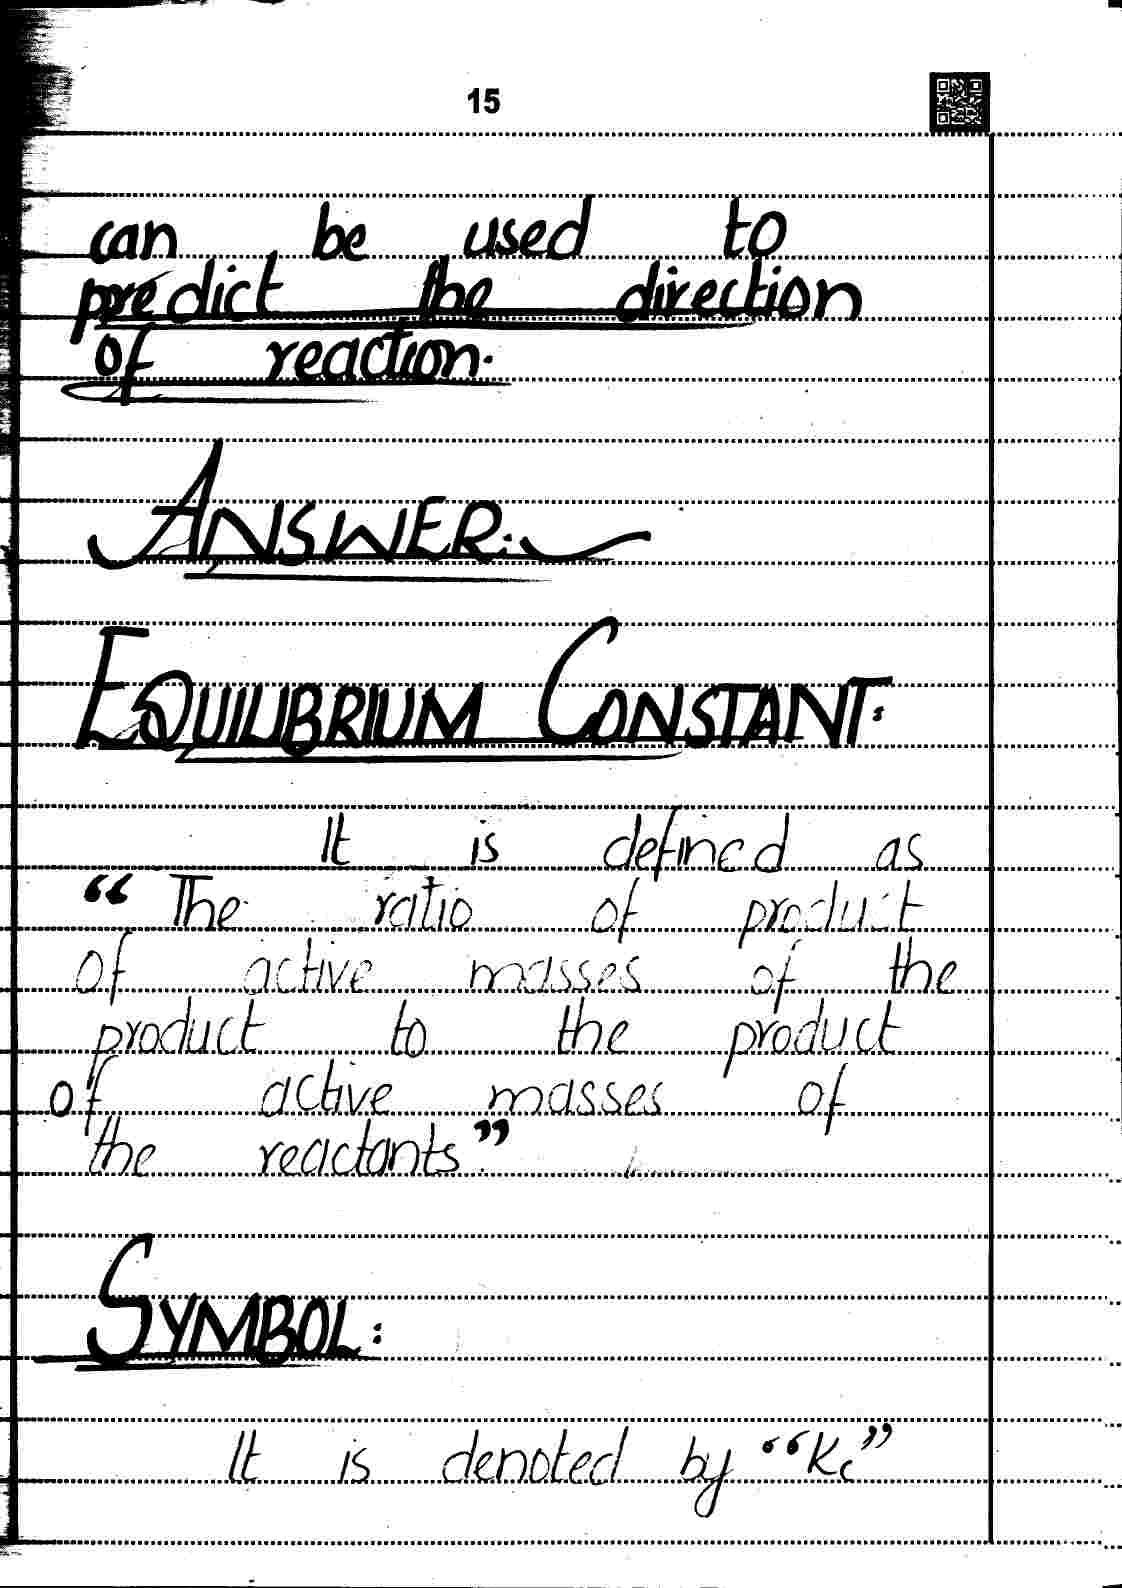 15
can be used to
predict the direction
of reaction.
ANSWER:
EQUILIBRIUM CONSTANT:
It is defined as
“The ratio of product
of active masses of the
product to the product
of active masses of
the reactants”.
SYMBOL:
It is denoted by “Kc”